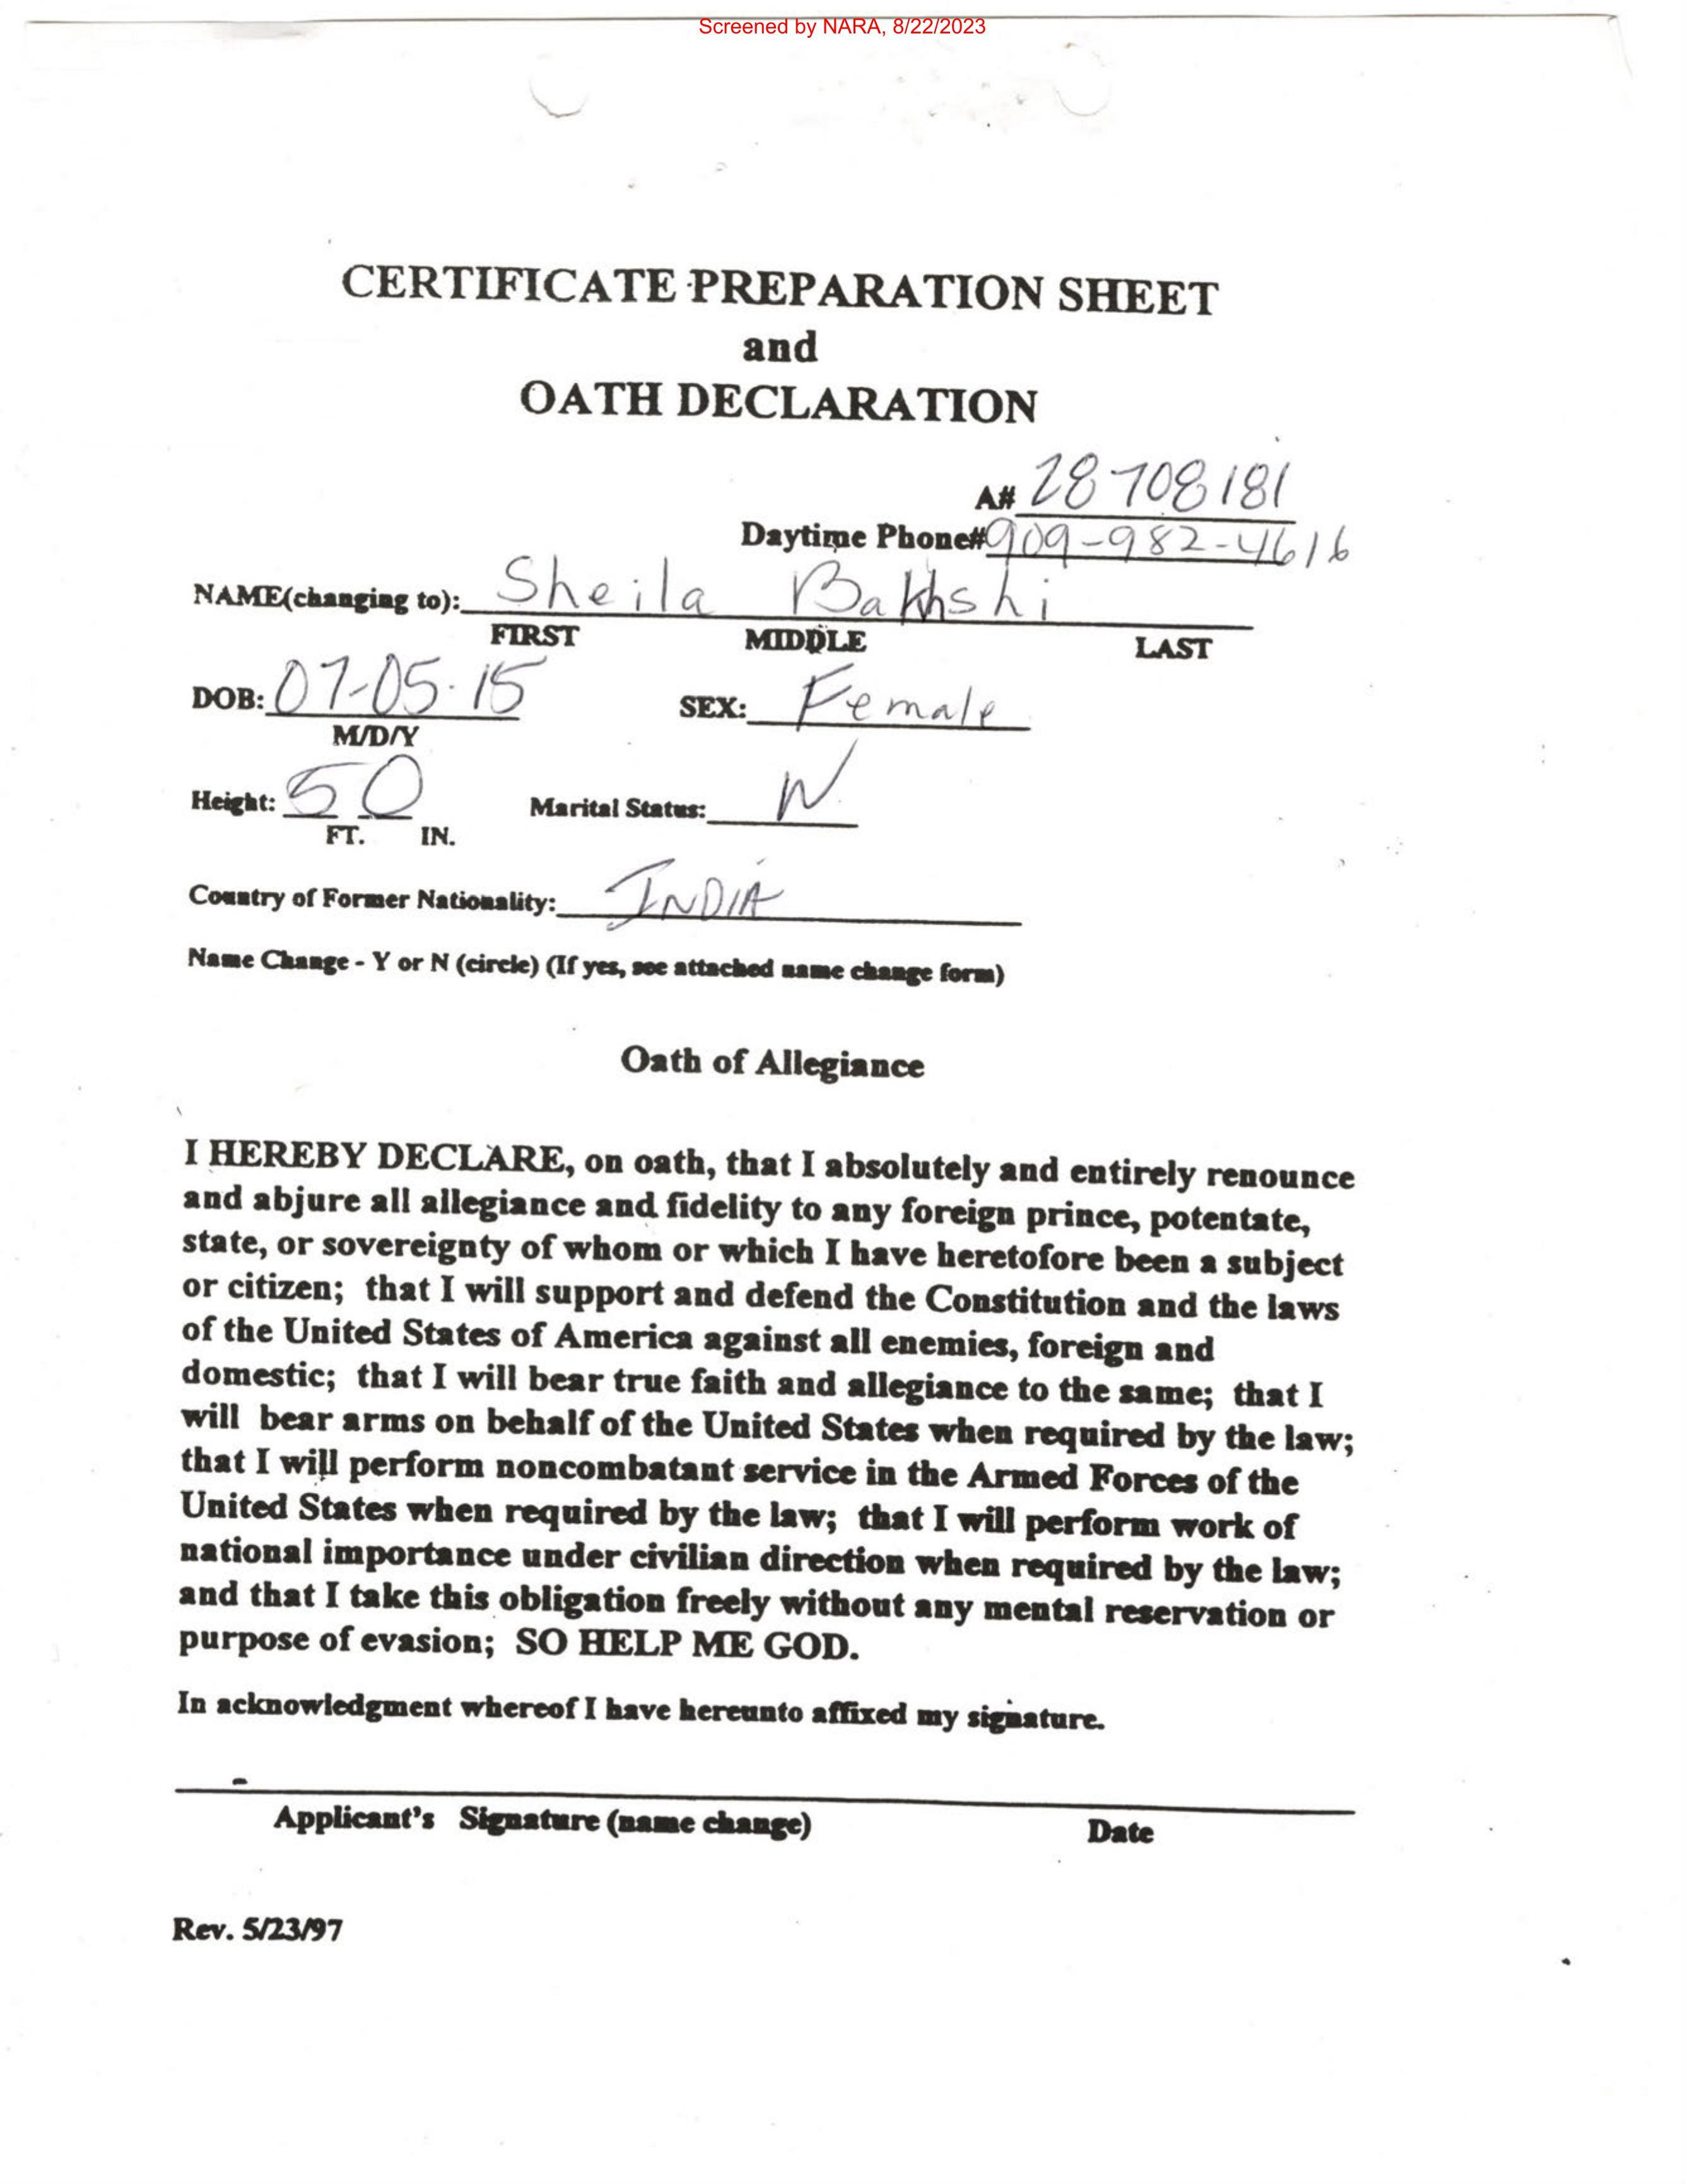 Screened by NARA, 8/22/2023
CERTIFICATE PREPARATION SHEET
and
OATH DECLARATION
A# 28708181
Daytime Phone# 909-982-4616
NAME(changing to): Sheila Bakhshi
FIRST MIDDLE LAST
DOB: 07-05-15 SEX: Female
M/D/Y
Height: 5 0 Marital Status: W
FT. IN.
Country of Former Nationality: INDIA
Name Change - Y or N (circle) (If yes, see attached name change form)
Oath of Allegiance
I HEREBY DECLARE, on oath, that I absolutely and entirely renounce
and abjure all allegiance and fidelity to any foreign prince, potentate,
state, or sovereignty of whom or which I have heretofore been a subject
or citizen; that I will support and defend the Constitution and the laws
of the United States of America against all enemies, foreign and
domestic; that I will bear true faith and allegiance to the same; that I
will bear arms on behalf of the United States when required by the law;
that I will perform noncombatant service in the Armed Forces of the
United States when required by the law; that I will perform work of
national importance under civilian direction when required by the law;
and that I take this obligation freely without any mental reservation or
purpose of evasion; SO HELP ME GOD.
In acknowledgment whereof I have hereunto affixed my signature.
Applicant's Signature (name change) Date
Rev. 5/23/97